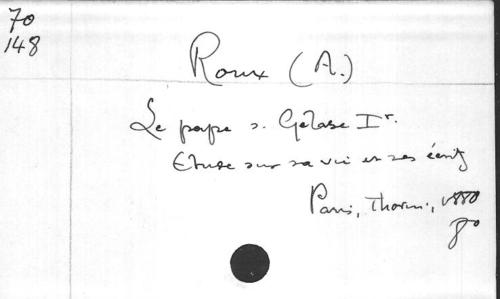 70
148
Roux (A.)
Le pape s. Gélase Ir.
Etude sur sa vie et ses écrits
Paris, Thorin, 1880
8o